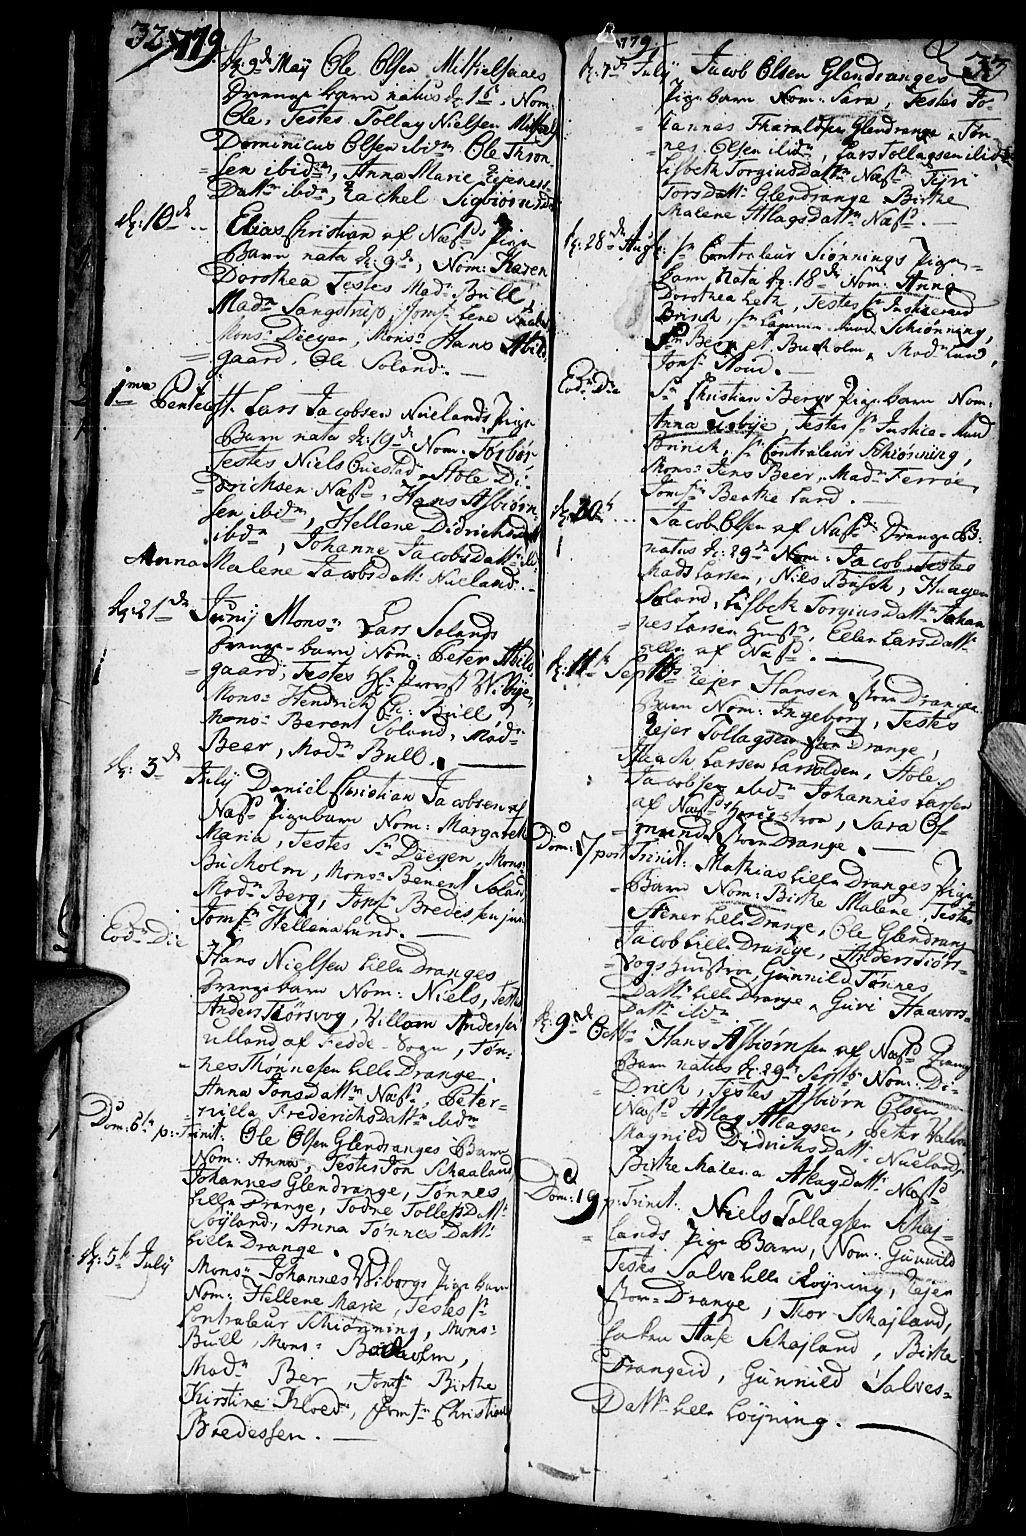 32
1779.
d: 9de Maÿ Ole Olsen Mikkelsaaes
Drenge barn natus d: 1st. Nom:
Ole, Testes Tollag Nielsen
Dominicus Olsen ibidm Ole Thron
sen ibidm, Anna Marie Ejeness
Dattr ibidm, Rachel Sigbiørnsd
d: 10de .. Elias Christian af Næss Pige
Barn nata d: 9de, Nom: Karen
Dorothea Testes Madm Bull,
Madm Sangstrup, Jomf Lene
Mons Deegen, Monsr Hans Abils
gaard, Ole Soland. —
1ma Pentecost. Lars Jacobsen Nuelands Pige
Barn nata d: 19de Nom: Torbor,
Testes Niels Questad Stole Di-
drichsen Næss, Hans Asbiørn
sen ibidm, Hellene Didrichsdatt
ibdm, Johanne Jacobsdattr
Anna Malene Jacobsdattr Nueland. —
d: 21de Junij Monsr Lars Solands
Drenge-barn Nom: Peter Abils
gaard, Testes Hr. Provst Wibye,
Monsr Hendrich Chr: Bull,
Monsr Berent Soland, Madm
Beer, Madm Bull. —
d: 3de Julÿ Daniel Christian Jacobsen af
Næss Pigebarn Nom: Margareth
Maria, Testes Sr Deegen, Monsr
Bucholm, Monsr Benent Soland
Madm Berg, Jomf Bredessen
Jomfr Hellena Lund. —
Eodm Die
Hans Nielsen Lille Dranges
Drenge barn Nom: Niels, Testes
Anders Tiørsvog, Willom Andersen
Ulland af Fedde-Sogn, Tøn-
nes Thønnesen Lille Drange.
Anna Jonsdattr Næss, Peter-
nilla Frederichsdattr ibdm
Dom: 6te p: Trinit: Ole Olsen Glendranges Barn
Nom: Anna, Testes Jon Schaaland
Johannes Glendrange, Tønnes
Lille Drange, Todne Tollefsdattr
Søyland, Anna Tønnesdattr
Lille Drange.
d: 5te Julij
Monsr Johannes Wiborgs Pige barn
Nom: Hellene Marie, Testes Sr
Contraleur Schiønning, Monsr
Bull, Monsr Bucholm,
Madm Ber, Jomfr Birthe
Kirstine Floed, Jomfr Christian
Bredessen. —
1779
33
d: 7de Julÿ Jacob Olsen Glendranges
Pige barn Nom: Sara, Testes Jo-
hannes Tharaldsen Glendrange, Tøn-
nes Olsen ibidm, Lars Tollagsen ibid
Lisbeth Torgiusdattr Næss Siri
Torsdattr Glendrange Birthe
Malene Atlagsdattr Næss. —
d: 28de Augt: Sr Contraleur Siønnings Pige-
barn Nata d: 18de Nom: Anna
Dorothea Leth, Testes Sr Justicraad
Brinch, Sr Schiønning,
Sr Beer, Buckolm, Madm Lund,
Jomf Floed. —
Eodm Die
Sr Christian Bergs Pige barn Nom:
Anna Usbye, Testes Sr Justice-Raad
Brinch, Sr Contraleur Schiønning,
Monsr Jens Beer, Madm Ferröe,
Jomfr Benthe Lund. —
d: 30te ... Jacob Olsen af Næss Drenge B:
natus d: 29de Nom: Jacob Testes
Mads Larsen, Niels Busch, Haagen
Soland, Lisbeth Torgiusdattr Johan
nes Larsen Hustr, Ellen Larsdattr
alle af Næss. —
d: 11te Septbr Ejer Hansen Store Dranges
Barn Nom: Ingeborg, Testes
Ejer Tollagsen Store Drange,
Isach Larsen, Stole
Jacobsen ibidm Johannes Larsen
af Næss Hustroe, Sara Os-
munds Store Drange. —
Dom: 17 post Trinit: Mathias Lille Dranges Pige
Barn Nom: Birthe Malene, Testes
Stener Lille Drange, Ole Glendrang
Jacob Lille Drange, Anders Tiørs-
vogs Hustroe, Gunnild Tønnes
Dattr Lille Drange, Guri Haavors-
dattr ibdm.
d: 9de Octbr Hans Asbiørnsen af Næss Dreng
Barn natus d: 29de Septbr Nom: Di-
drich, Testes Asbiørn Olsen,
Næss Atlag Atlagsen, Peter
Magnild Didrichsdattr Nueland,
Birthe Malena Atlagdattr Næss
Dom: 19 p: Trinit: Niels Tollagsen Skaj-
lands Pige Barn, Nom: Gunnild
Testes Salve Lille Løyning, Ejer
Store-Drange, Thor Skajland,
Aase Schajland, Birthe
Drangeid, Gunnild Salves-
Dattr Lille Løyning. —